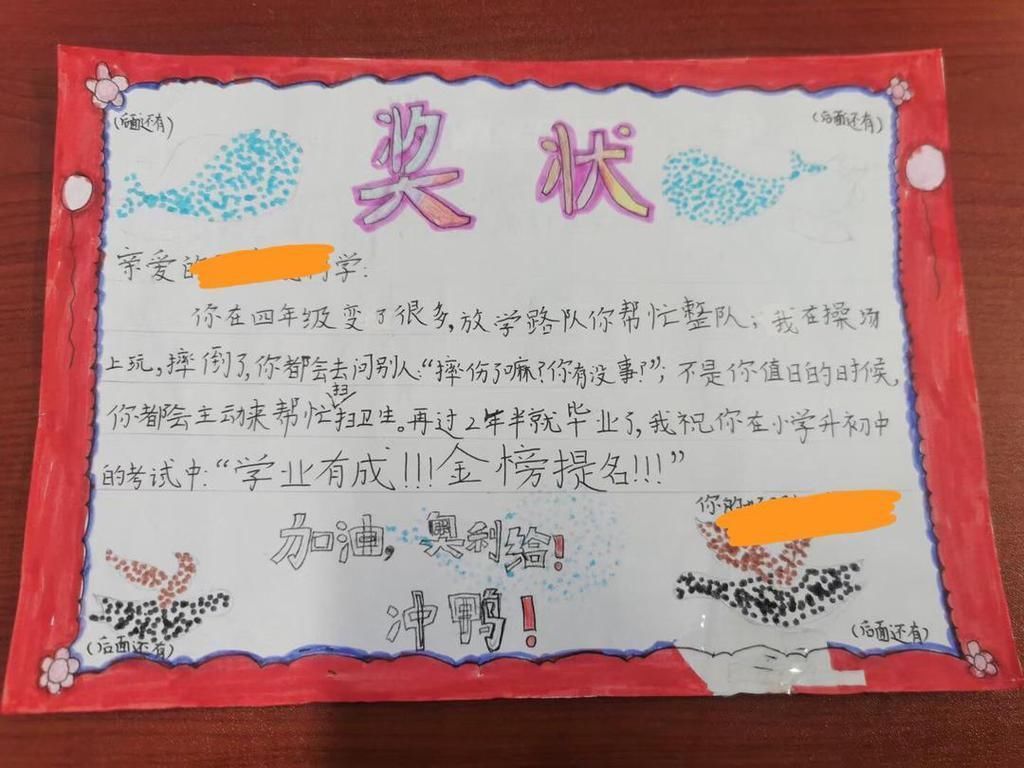 (后面还有)
(后面还有)
奖状
亲爱的同学:
你在四年级变了很多,放学路队你帮忙整队;我在操场
上玩,摔倒了,你都会去问别人:“摔伤了嘛?你有没事?”;不是你值日的时候,
扫
你都会主动来帮忙扫卫生。再过2年半就毕业了,我祝你在小学升初中
的考试中:“学业有成!!!金榜提名!!!”
你的
加油,奥利给!
冲鸭!
(后面还有)
(后面还有)